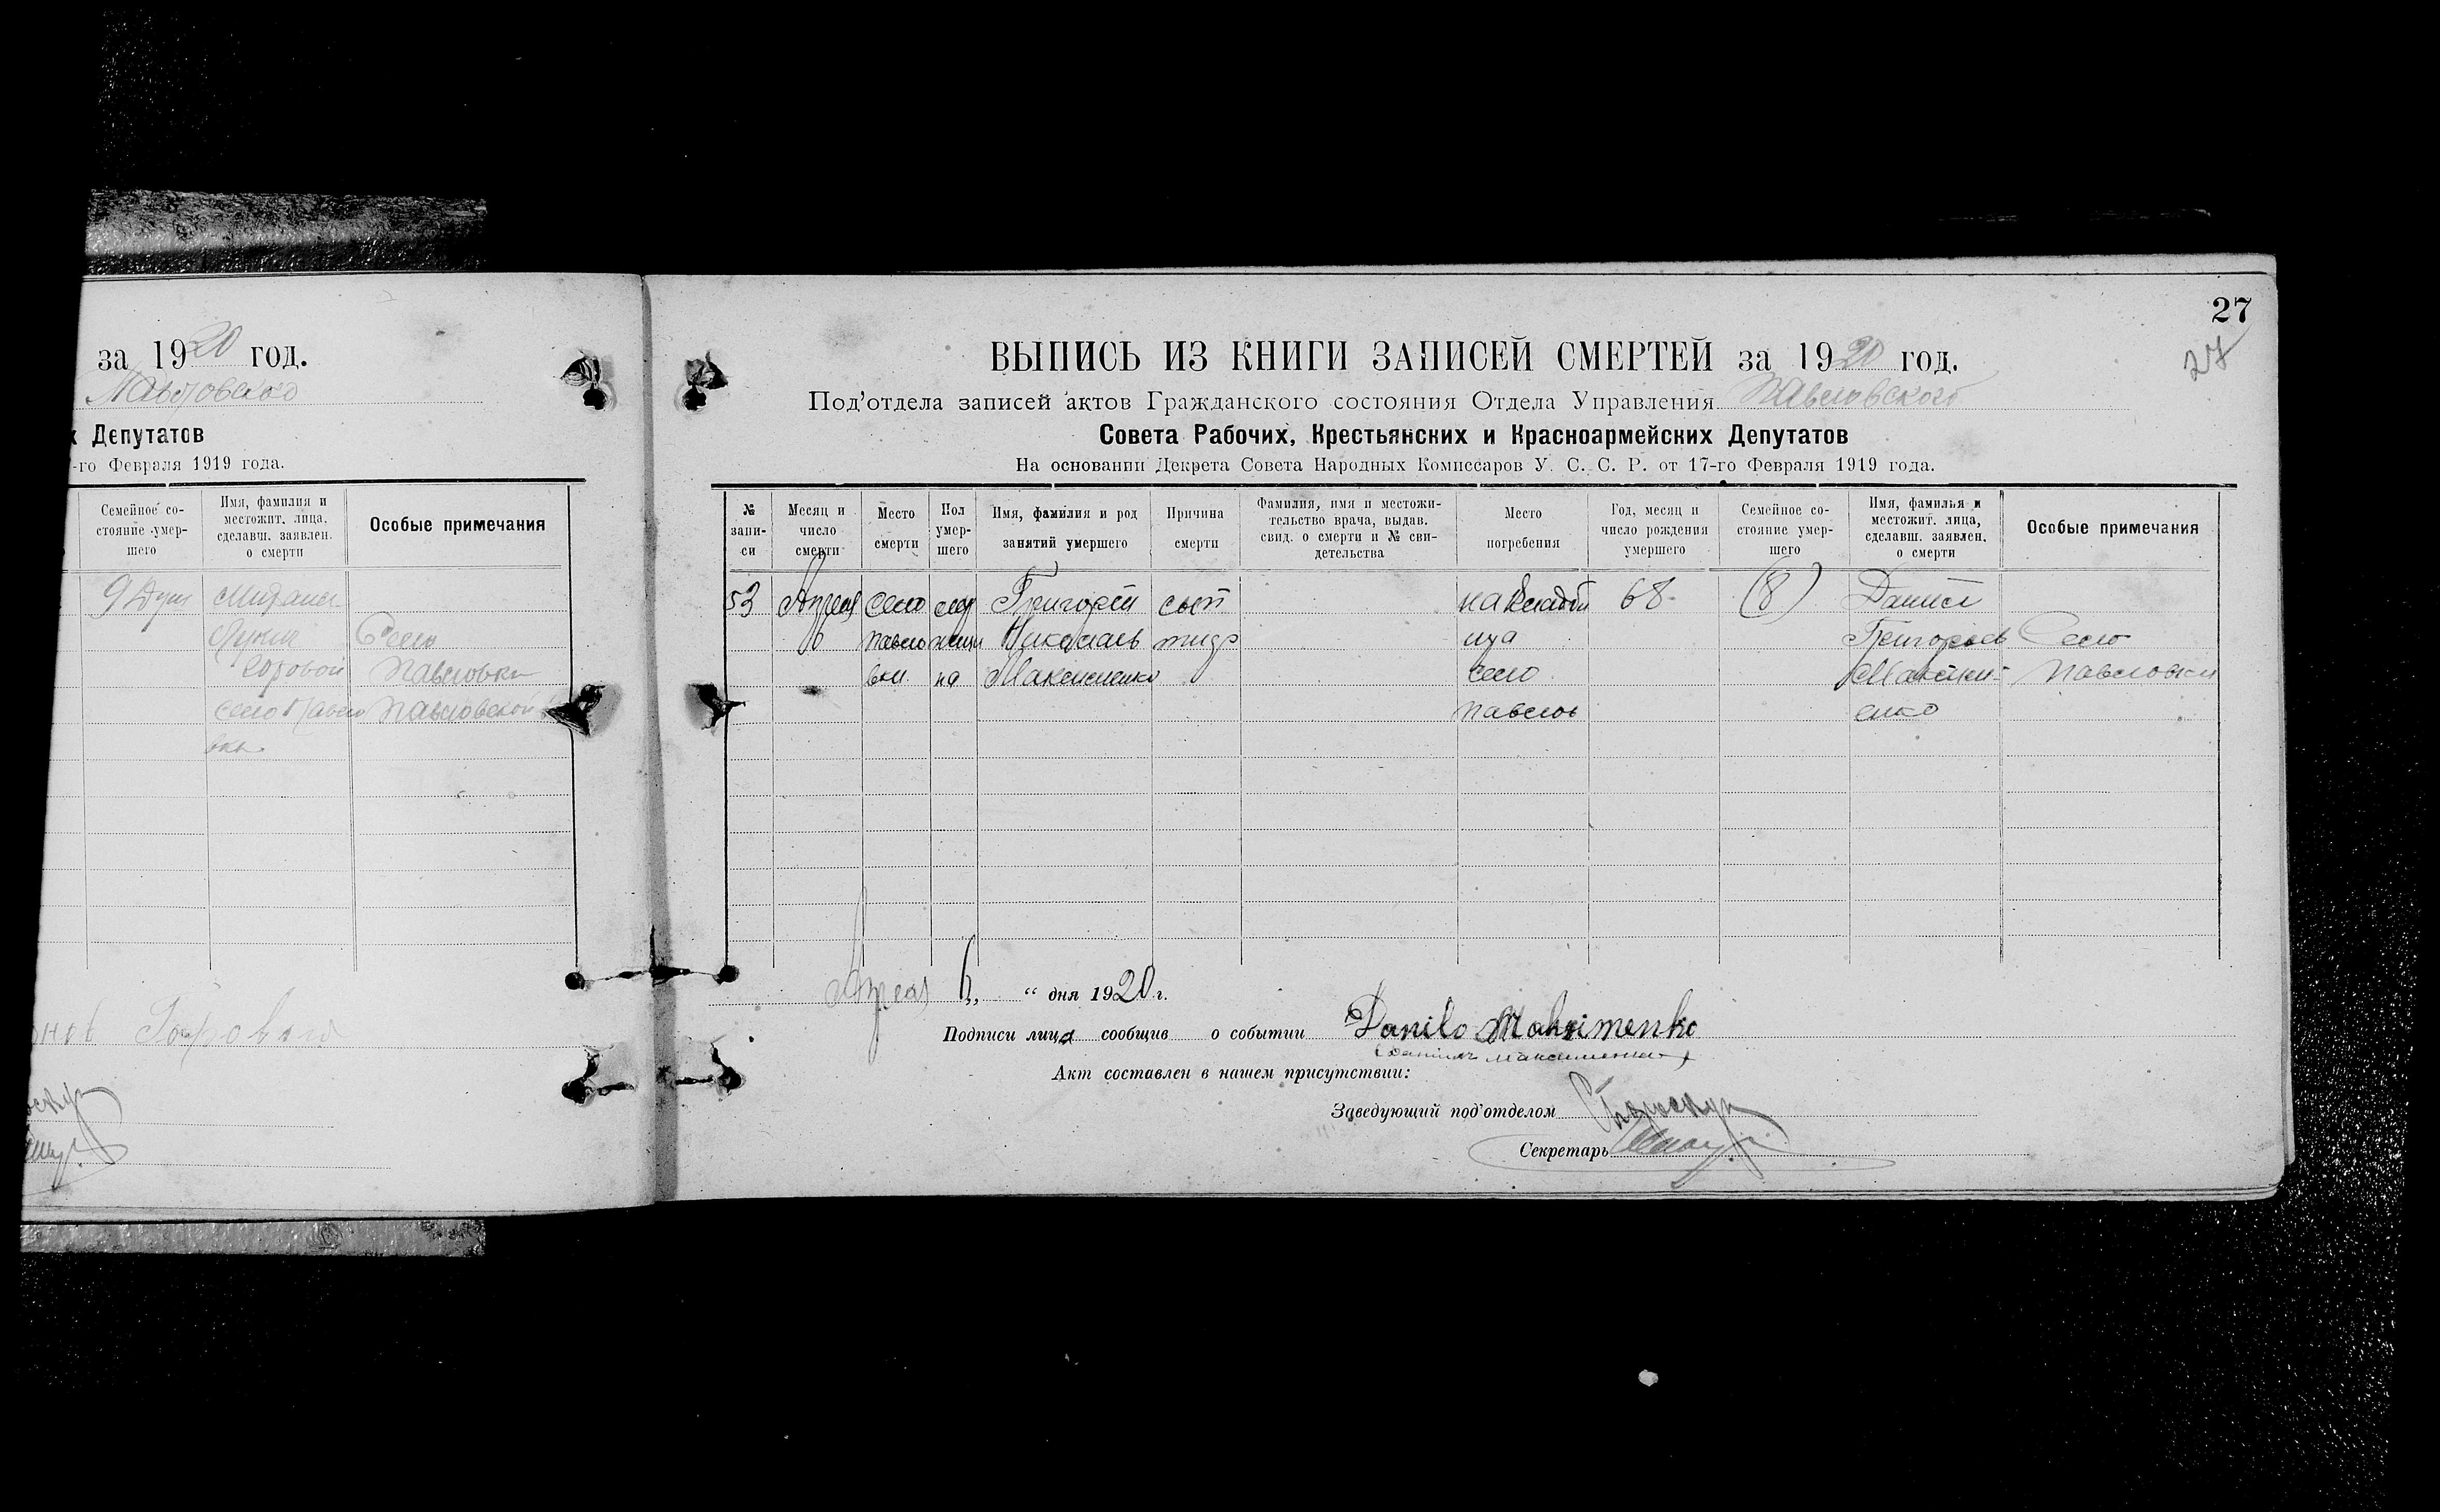 за 1920 год.
Павловского
х Депутатов
-го Февраля 1919 года.
Семейное со-
стояние умер-
шего
Имя, фамилия и
местожит. лица,
сделавш. заявлен.
о смерти
Особые примечания
9 Душ
Село
Павловки
село Павло Павловской
вки
27
27
ВЫПИСЬ ИЗ КНИГИ ЗАПИСЕЙ СМЕРТЕЙ за 1920 год.
Под'отдела записей актов Гражданского состояния Отдела Управления Павловского
Совета Рабочих, Крестьянских и Красноармейских Депутатов
На основании Декрета Совета Народных Комиссаров У. С. С. Р. от 17-го Февраля 1919 года.
№
запи-
си
Месяц и
число
смерти
Место
смерти
Пол
умер-
шего
Имя, фамилия и род
занятий умершего
Причина
смерти
Фамилия, имя и местожи-
тельство врача, выдав.
свид. о смерти и № сви-
детельства
Место
погребения
Год, месяц и
число рождения
умершего
Семейное со-
стояние умер-
шего
Имя, фамилья и
местожит. лица,
сделавш. заявлен.
о смерти
Особые примечания
53 Апреля Село Григорей сып на Кладби 68 (8) Данил
6 Павло Николаев тиф ища Григорьев Село
вки на Максименко село Максим- Павловки
Павлов енко
Апреля 6 „ “ дня 1920 г.
Подписи лица сообщив о событии Danilo Maksimenko
Акт составлен в нашем присутствии:
Заведующий под'отделом
Секретарь